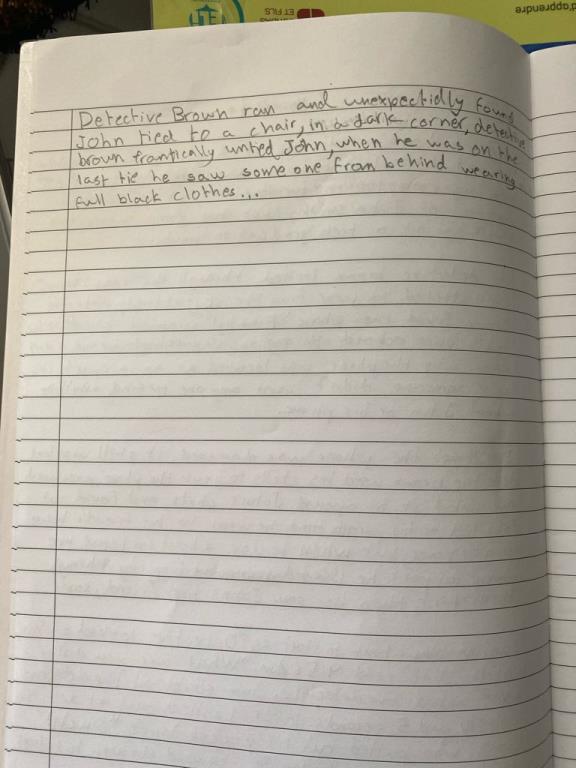 d'apprendre
ET FILS
Detective Brown ran and unexpectidly found
John tied to a chair, in a dark corner, detective
brown frantically untied John, when he was on the
last tie he saw some one from behind wearing
full black clothes...